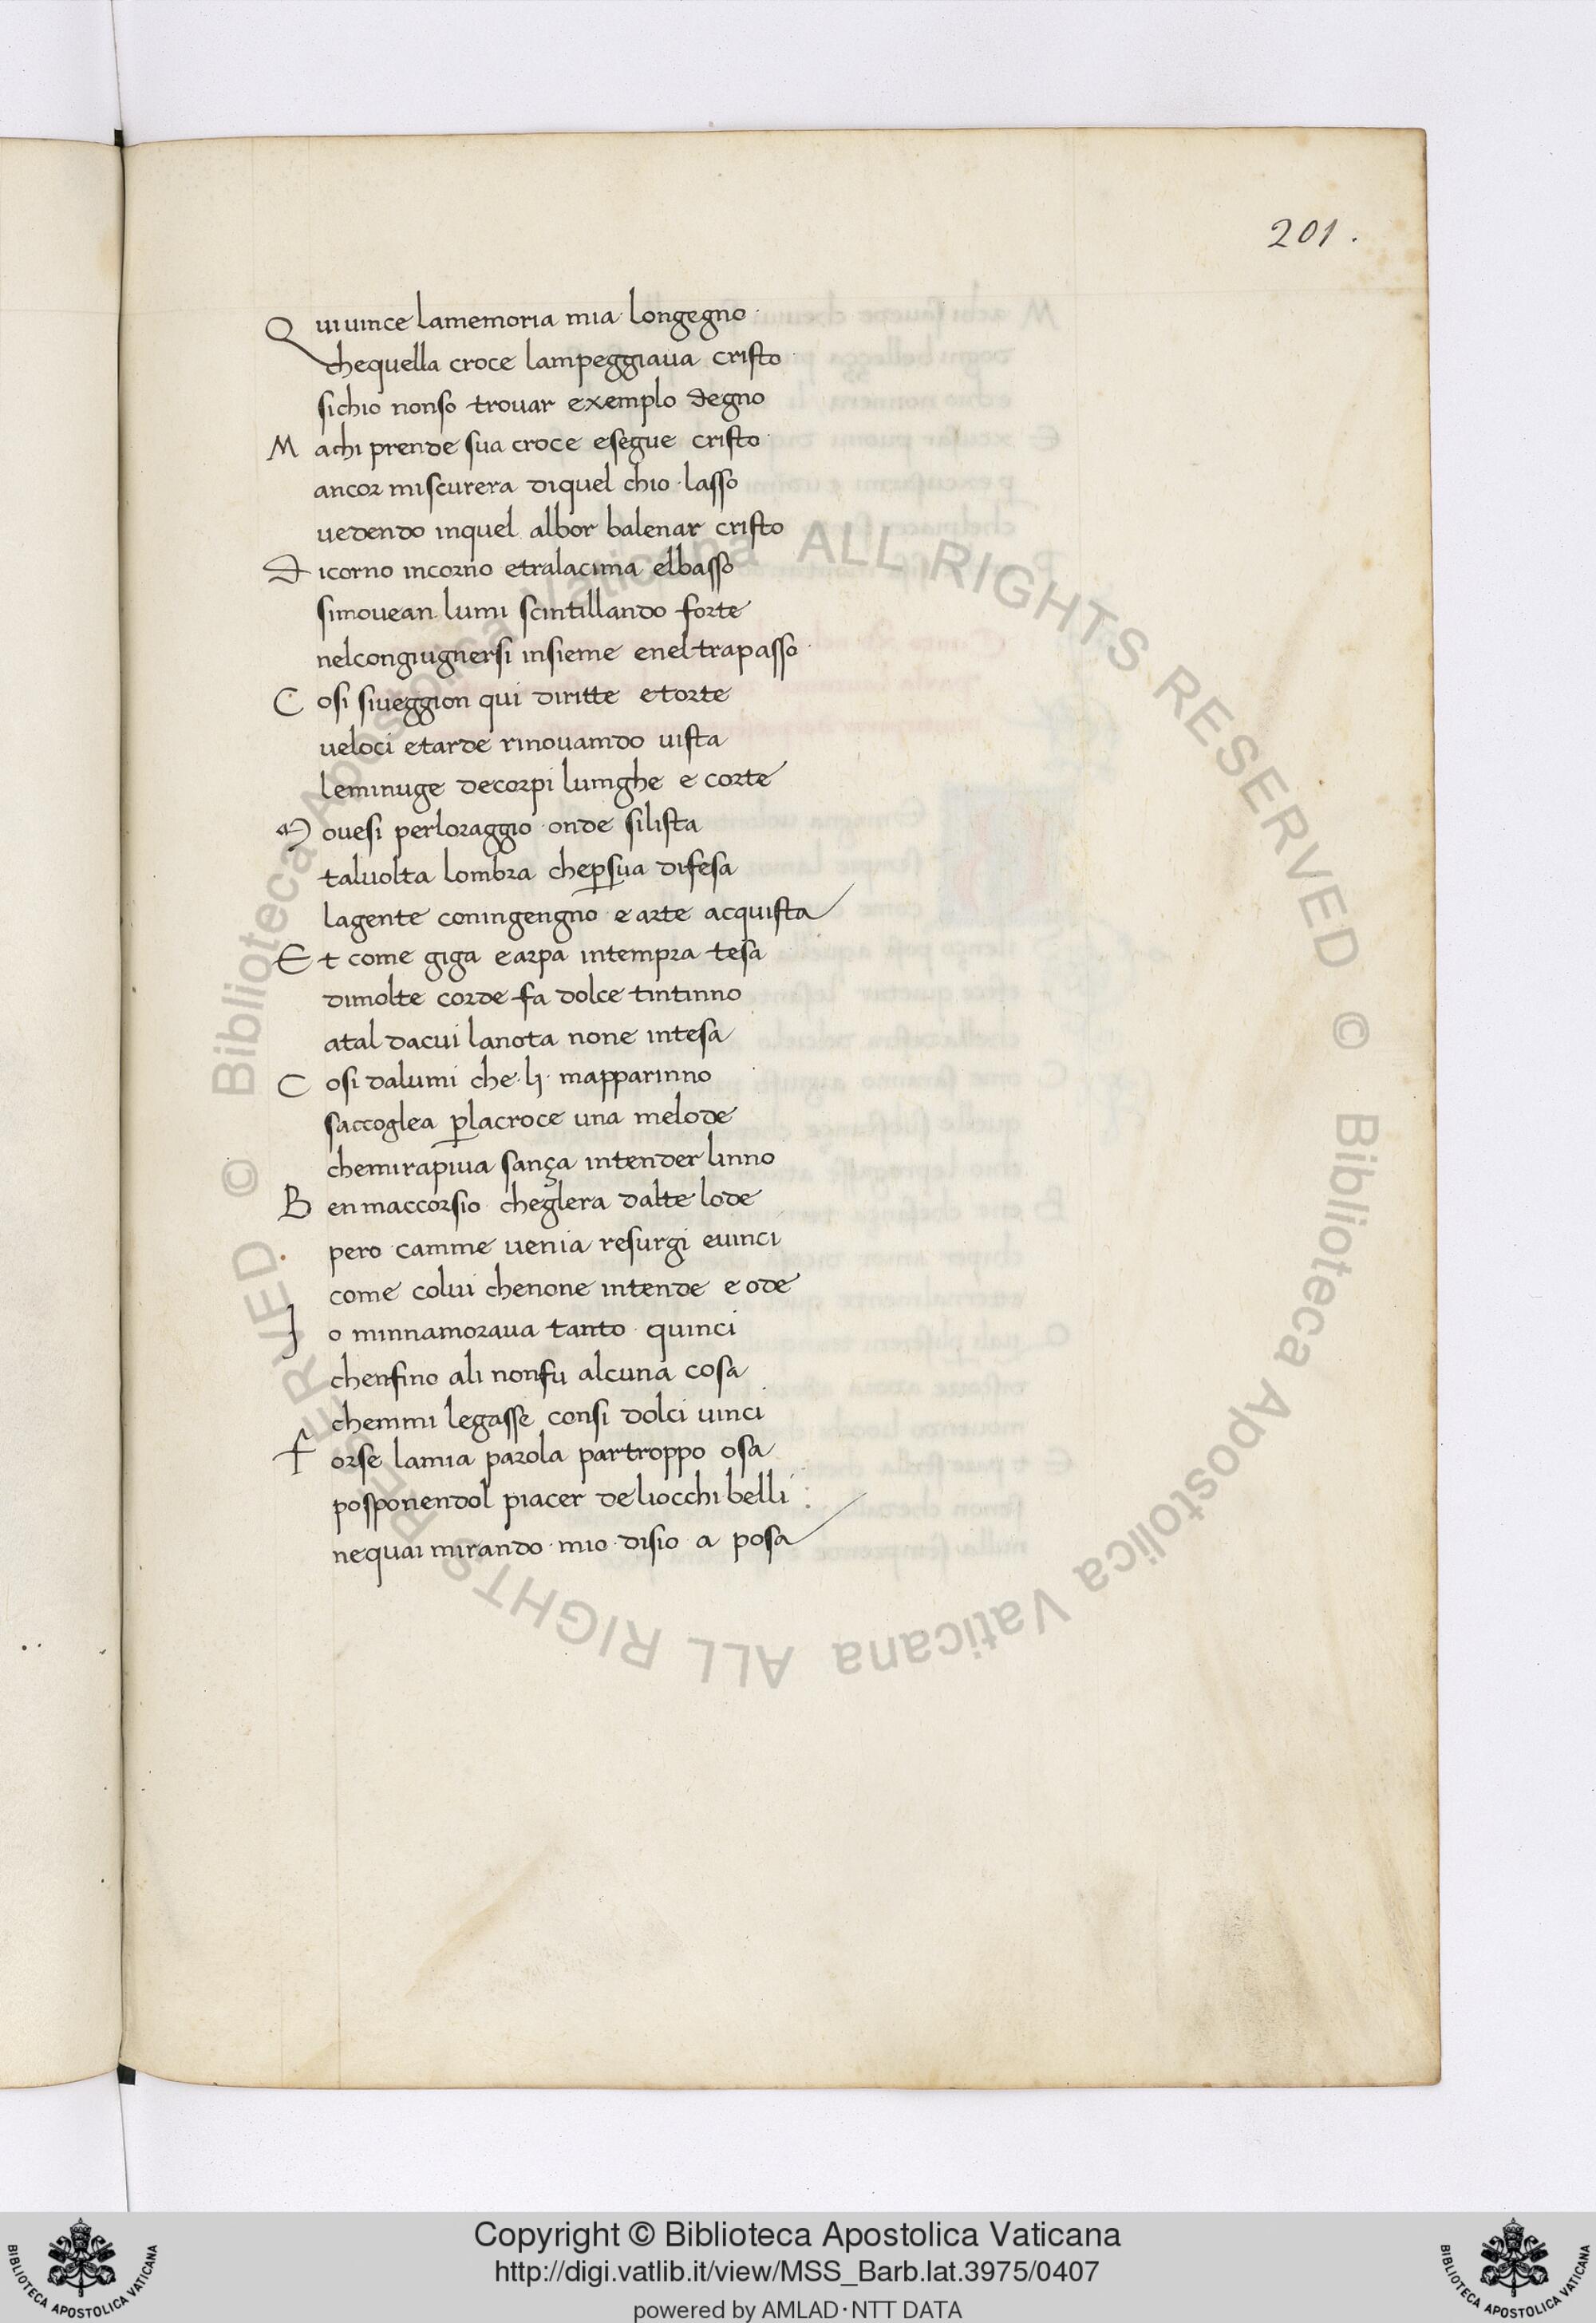 201.
Q uiuince lamemoria mia· longegno·
chequella croce lampeggiaua cristo·
sichio nonso trouar exemplo degno
M achi prende sua croce esegue cristo·
ancor miscurera diquel chio·lasso
uedendo inquel albor balenar cristo
D icorno incorno etralacima elbasso
simouean lumi scintillando forte
nelcongiugnersi insieme enel trapasso·
C osi siueggion qui diritte etorte
ueloci etarde rinouamdo uista
leminuge decorpi lumghe e corte
M ouesi perloraggio·onde silista
taluolta lombra chep̱sua difesa
lagente coningengno e arte acquista
E t come giga earpa intempra tesa
dimolte corde fa dolce tintinno
atal dacui lanota none intesa
C osi dalumi che·lj· mapparinno
saccoglea p̱lacroce una melode
chemirapiua sança intender linno
B enmaccorsio cheglera dalte lode
pero camme uenia resurgi euinci
come colui chenone intende e ode
J o minnamoraua tanto quinci
chenfino ali nonfu alcuna cosa
chemmi legasse consi dolci uinci
f orse lamia parola partroppo osa
posponendol piacer deliocchi belli
nequai mirando·mio·disio a posa
© Biblioteca Apostolica Vaticana ALL RIGHTS RESERVED © Biblioteca Apostolica Vaticana ALL RIGHTS RESERVED
BIBLIOTECA APOSTOLICA VATICANA
Copyright © Biblioteca Apostolica Vaticana
http://digi.vatlib.it/view/MSS_Barb.lat.3975/0407
powered by AMLAD·NTT DATA
BIBLIOTECA APOSTOLICA VATICANA